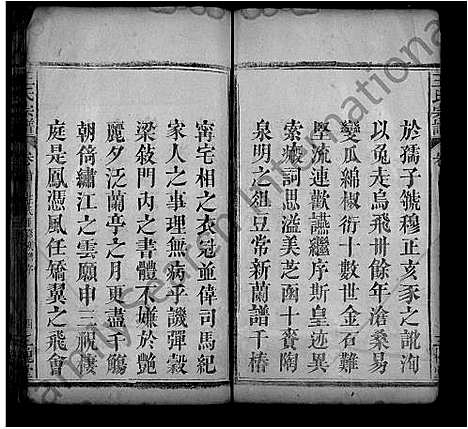 於孺子虢穆正亥豕之訛洵
以兔走烏飛卅餘年滄桑易
變瓜綿椒衍十數世金石難
堅流連歡讌繼序斯皇迹異
索 詞思溢美芝函十賚陶
泉明之俎豆常新蘭譜千椿
甯宅相之衣冠並偉司馬紀
家人之事理無病乎譏彈穀
梁敍門內之書體不嫌於艶
麗夕泛蘭亭之月更盡千觴
朝倚繡江之雲願申三祝棲
庭是鳳憑風任矯翼之飛會
王氏宗譜
王氏宗譜 卷
FamilySearch International